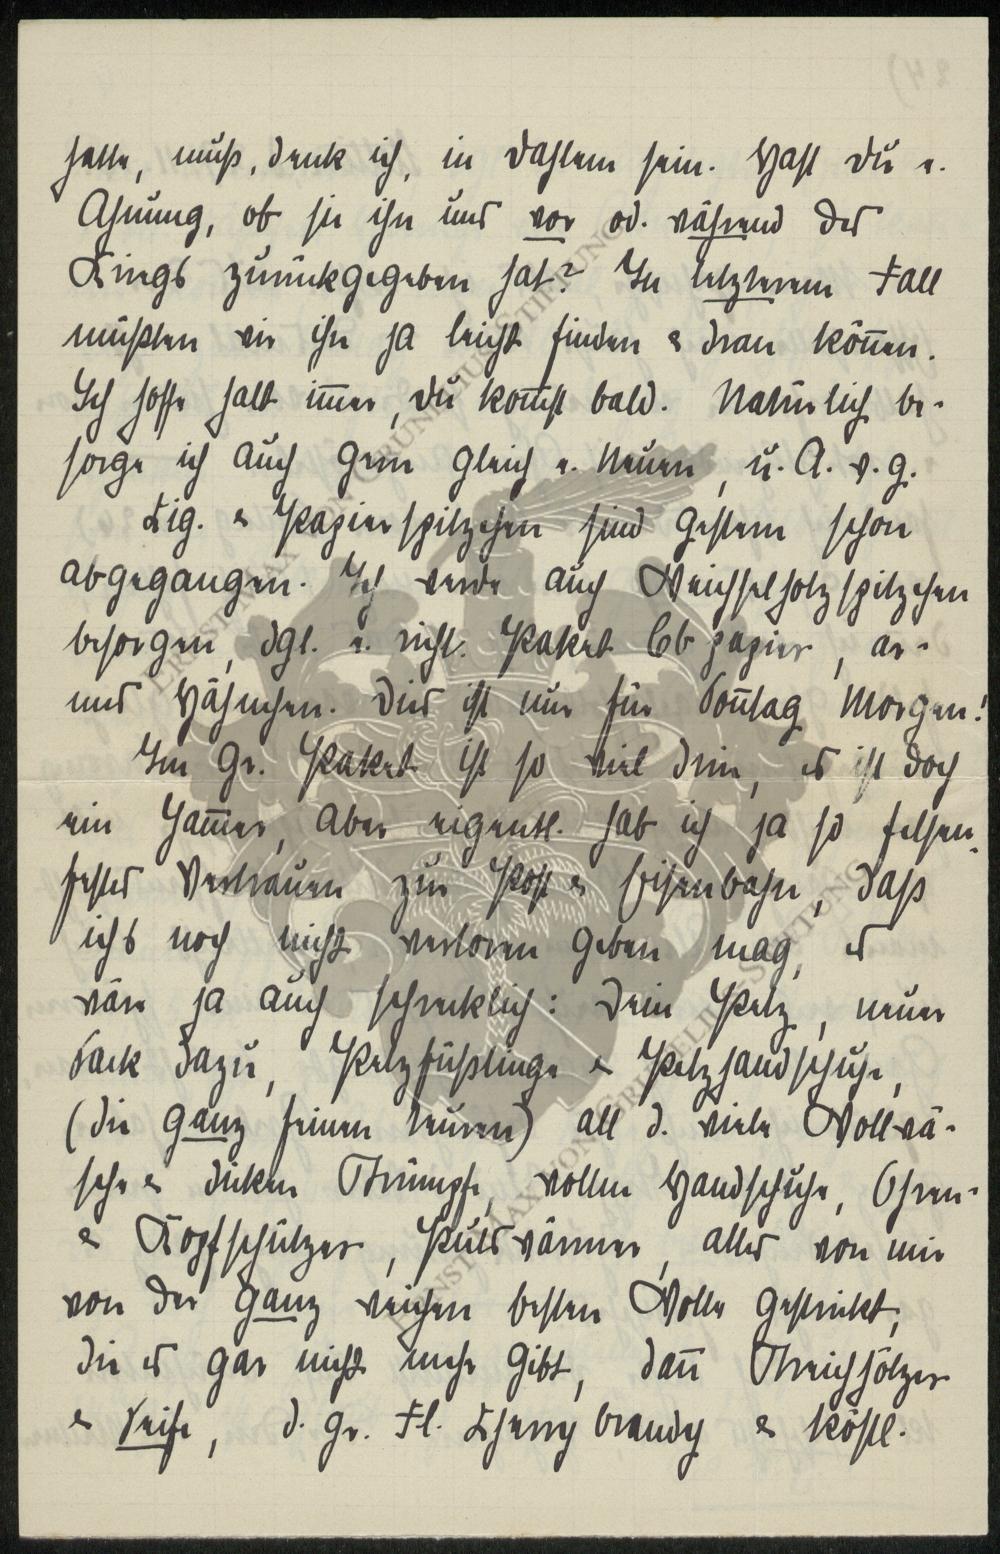 hatte, muß, denk ich, in Dahlem sein. Hast Du e.
Ahnung, ob sie ihn uns vor od. während des
Kriegs zurückgegeben hat? In letzterem Fall
müßten wir ihn ja leicht finden & dran können.
Ich hoffe halt im̅er, Du kom̅st bald. Natürlich be-
sorge ich auch gern gleich e. Neuen, u. A. w. g.
Cig. & Papierspitzchen sind gestern schon
abgegangen. Ich werde auch Weichselholzspitzchen
besorgen, dgl. e. richt. Paket Cb papier, ar-
mes Hähnchen. Dies ist nur für Son̅tag Morgen!
Im gr. Paket ist so viel drin, es ist doch
ein Jam̅er, aber eigentl. hab ich ja so felsen-
festes Vertrauen zur Post & Eisenbahn, daß
ichs noch nicht verloren geben mag, es
wäre ja auch schrecklich: Dein Pelz, neuer
Sack dazu, Pelzfüßlinge & Pelzhandschuhe,
(die ganz feinen teuren) all d. viele Wollwä-
sche & dicken Strümpfe, wollne Handschuhe, Ohren-
& Kopfschützer, Pulswärmer, alles von mir
von der ganz weichen besten Wolle gestrickt,
die es gar nicht mehr gibt, dan̅ Streichhölzer
& Seife, d. gr. Fl. Cherry brandy & köstl.